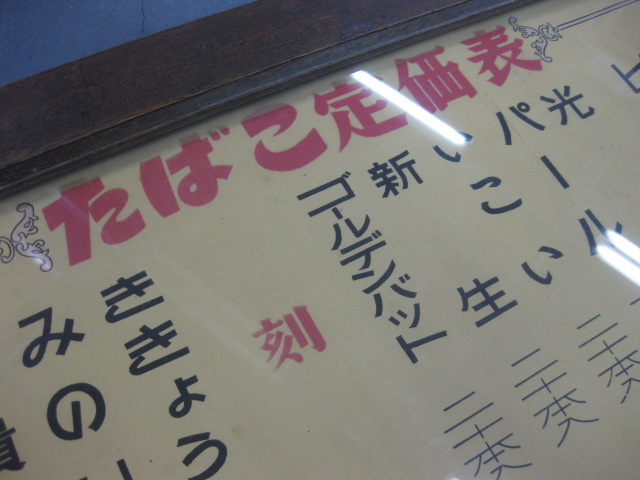 たばこ定価表
光
パール 二十本
いこい 二十本入
新生 二十本
ゴールデンバット
刻
ききょう
みの